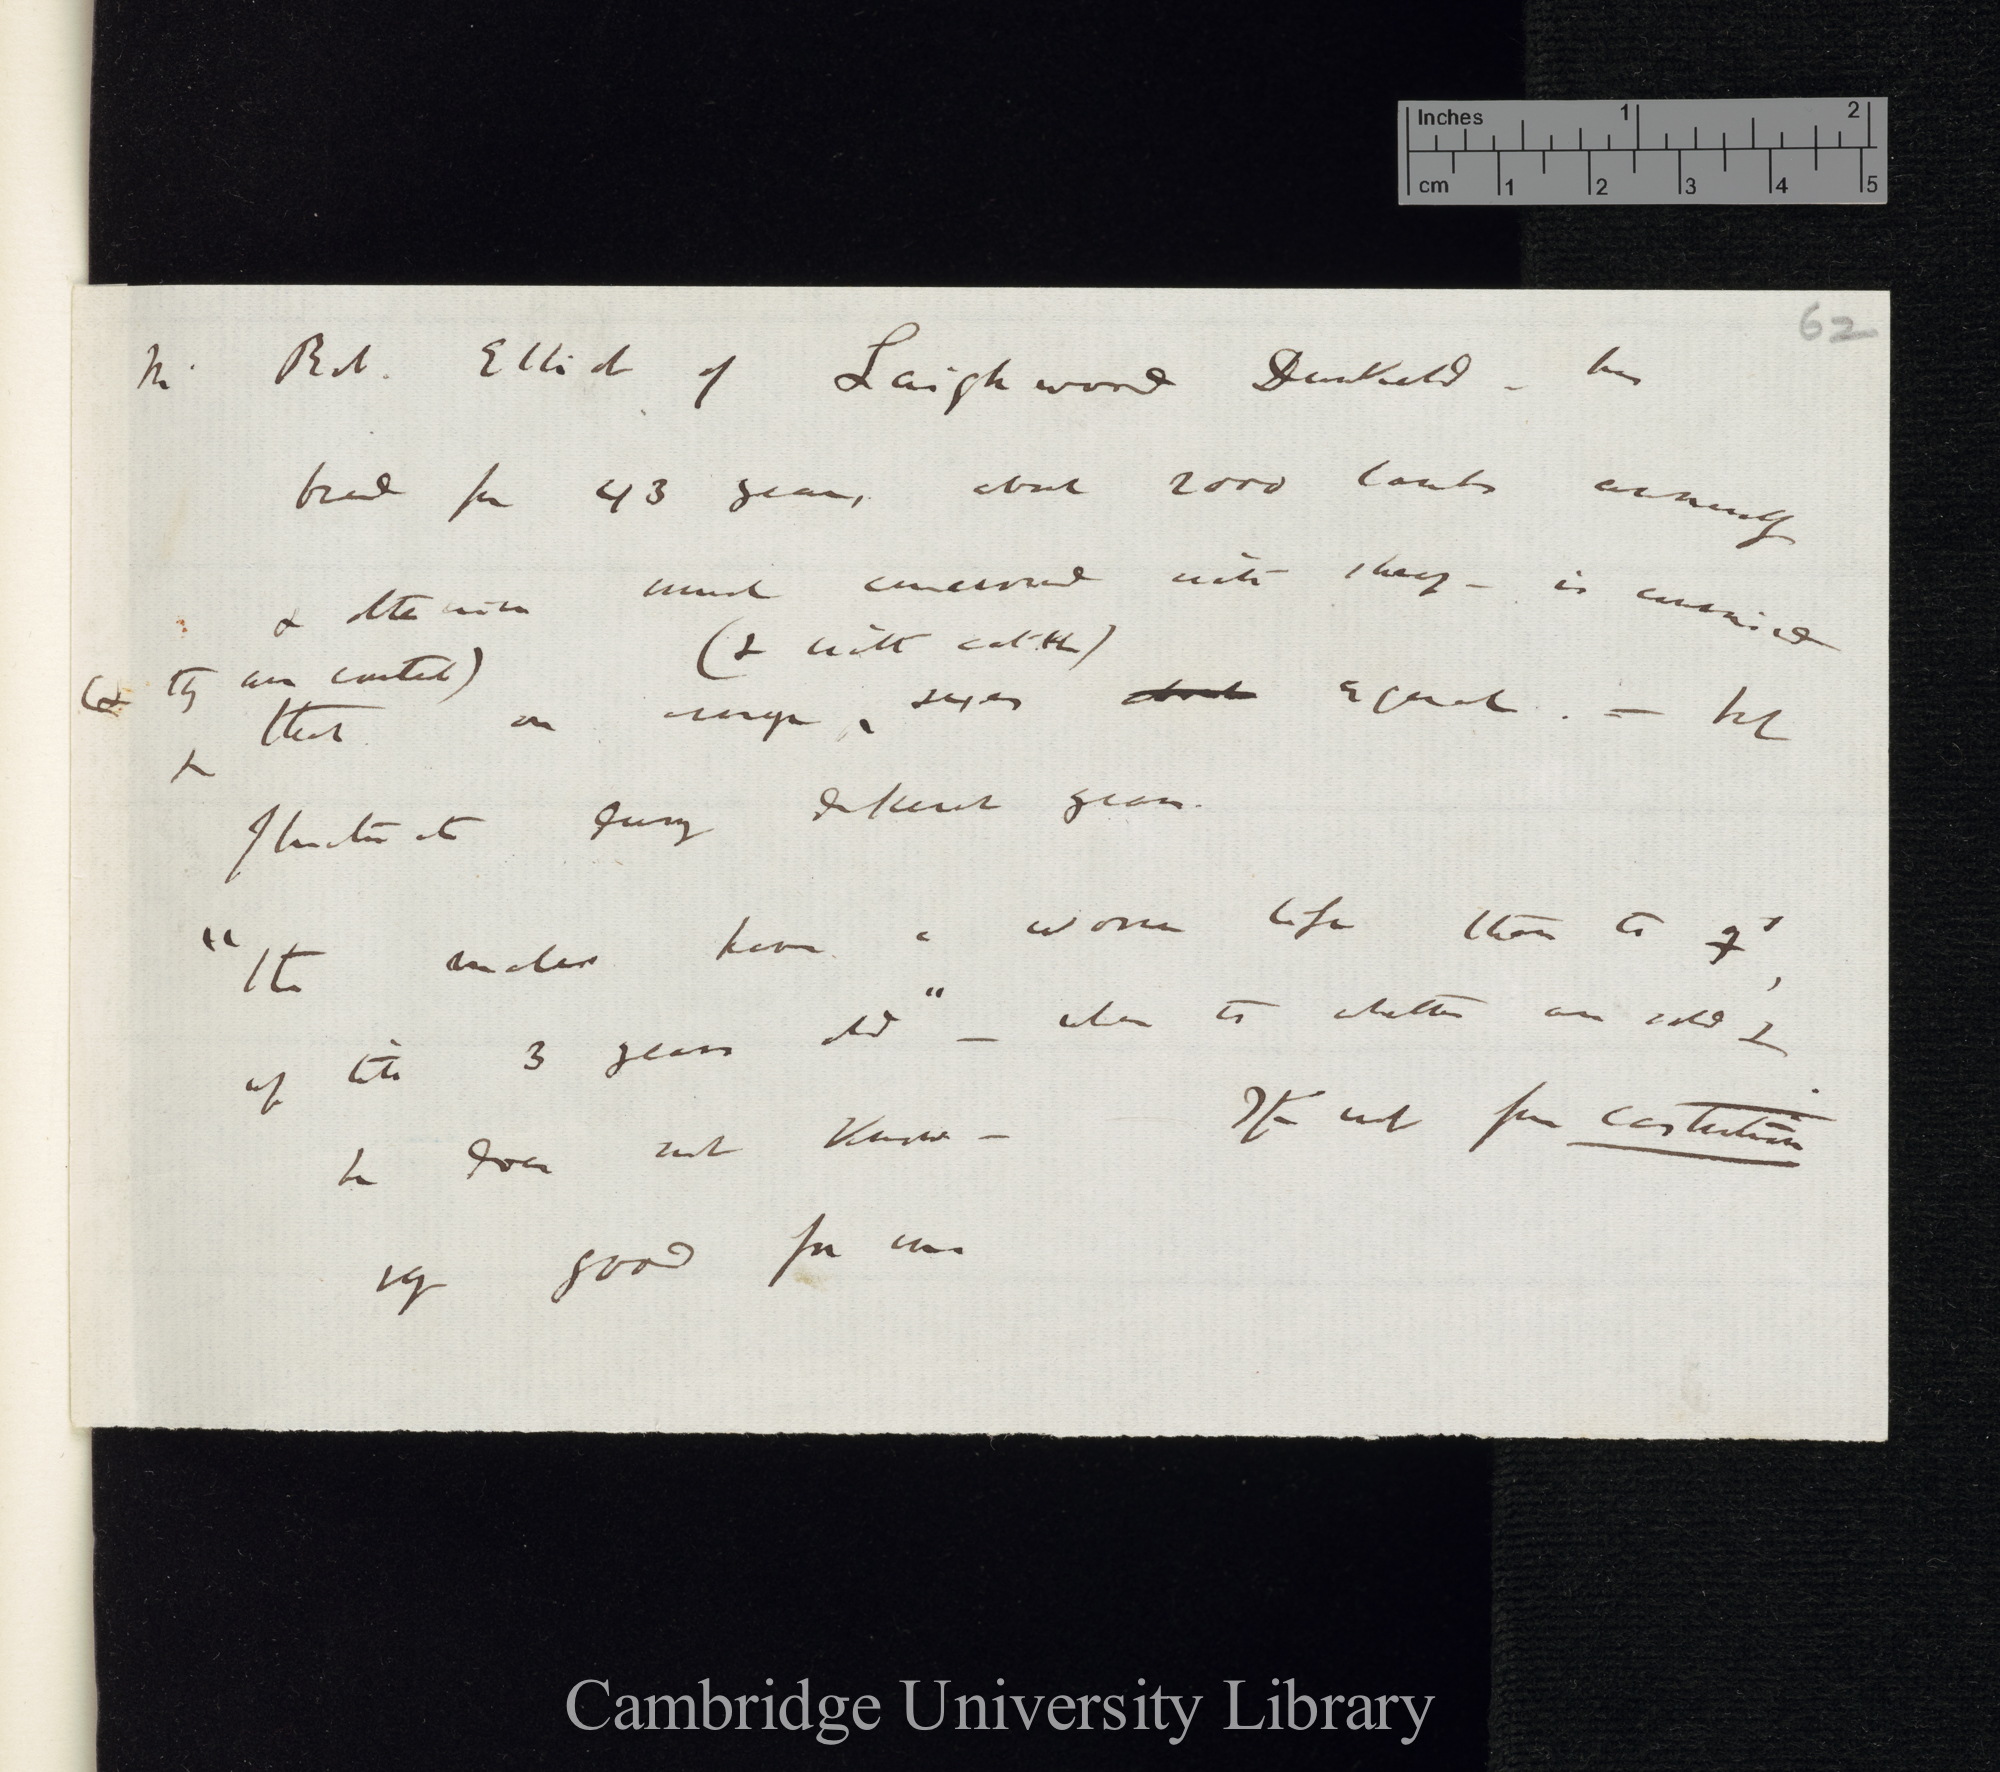 Inches 1 2
cm 1 2 3 4 5
62
Mr Rob. Elliot of Laighwood Dunkeld — has
bred for 43 years, about 2000 lambs annually
& otherwise much concerned with sheep — is convinced
(& they are counted) (& with cattle)
that on average, sexes about equal. — but
fluctuate during different years.
"The males have a worse life than the ♀s,
up till 3 years old" — when the whethers are sold &
he does not know — If not for castration
very good for me
Cambridge University Library